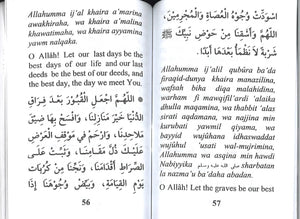 Allahumma ij'al khaira a'marina
awakhiraha, wa khaira a'malina
khawatimaha, wa khaira ayyamina
yawm nalqaka.
O Allah! Let our last days be the
best days of our life and our last
deeds be the best of our deeds, and
the best day, the day we meet You.
اللَّهُمَّ اجْعَلِ الْقُبُورَ بَعْدَ فِرَاقِ
الدُّنْيَا خَيْرَ مَنَازِلِنَا، وَأَفْسِحْ بِهَا ضِيقَ
مَلَاحِدِنَا، وَارْحَمْ فِي مَوْقِفِ الْعَرْضِ
عَلَيْكَ ذُلَّ مَقَامِنَا، وَثَبِّتْ عَلَى
الصِّرَاطِ أَقْدَامَنَا، وَنَجِّنَا مِنْ كُرُبَاتِ
يَوْمِ الْقِيَامَةِ، وَبَيِّضْ وُجُوهَنَا إِذَا
56
اسْوَدَّتْ وُجُوهُ الْعُصَاةِ وَالْمُجْرِمِينَ،
اللَّهُمَّ وَاسْقِنَا مِنْ حَوْضِ نَبِيِّكَ ﷺ
شَرْبَةً لَا نَظْمَأُ بَعْدَهَا أَبَدًا.
Allahumma ij'alil qubūra ba'da
firaqid-dunya khaira manazilina, wa
afsah biha diqa malahidina,
warham fī mawqifil'ardi 'alaika
dhulla maqamina, wa thabbit 'alas
sirati aqdamana, wa najjina min
kurubati yawmil qiyama, wa
bayyid wujūhana idhaswaddat
wujūhul 'usati wal-mujrimin,
Allahumma wa asqina min hawdi
Nabiyyika ﷺ sharbatan la
nazma'u ba'daha abadan.
O Allāh! Let the graves be our best
57